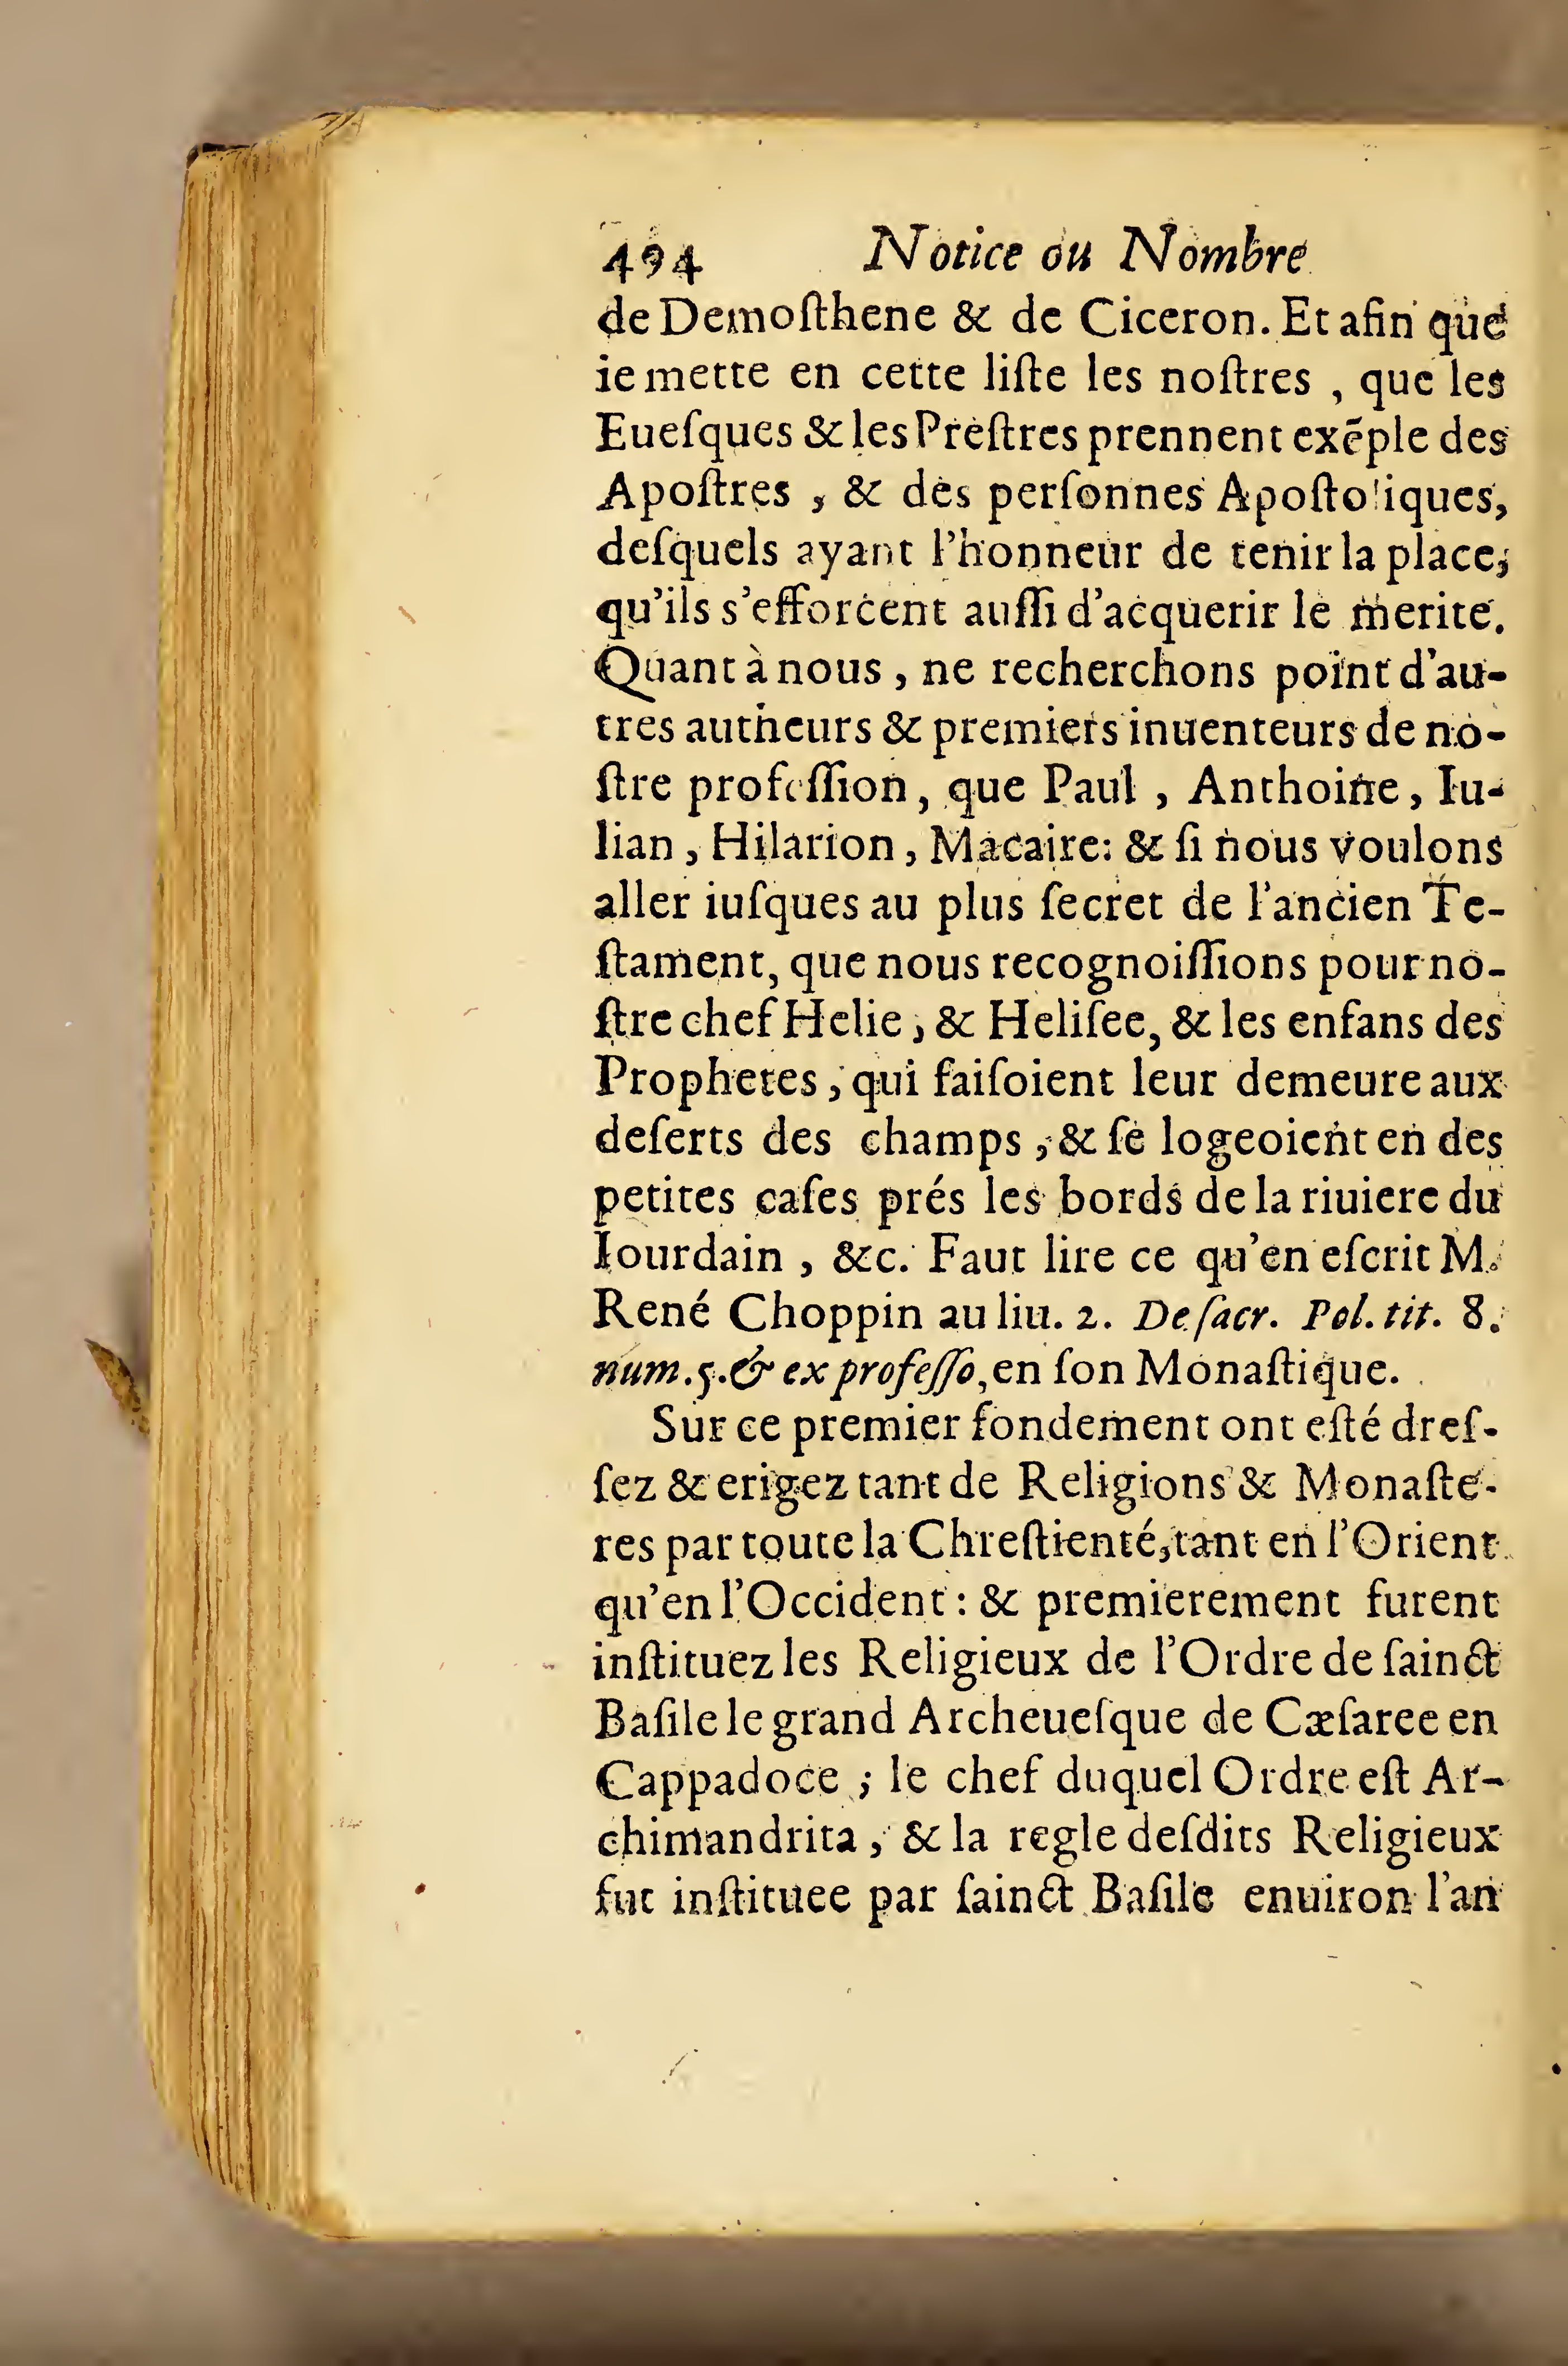 494 Notice ou Nombre
de Demoſthene & de Ciceron. Et afin que
ie mette en cette liſte les noſtres , que les
Eueſques & les Preſtres prennent exēple des
Apoſtres , & des perſonnes Apoſtoliques,
deſquels ayant l'honneur de tenir la place,
qu'ils s'efforcent auſſi d'acquerir le merite.
Quant à nous , ne recherchons point d'au-
tres autheurs & premiers inuenteurs de no-
ſtre profeſſion, que Paul , Anthoine, Iu-
lian , Hilarion , Macaire: & ſi nous voulons
aller iuſques au plus ſecret de l'ancien Te-
ſtament, que nous recognoiſſions pour no-
ſtre chef Helie , & Heliſee, & les enfans des
Prophetes , qui faiſoient leur demeure aux
deſerts des champs , & ſe logeoient en des
petites caſes prés les bords de la riuiere du
Iourdain , &c. Faut lire ce qu'en eſcrit M.
René Choppin au liu. 2. De ſacr. Pol. tit. 8.
num. 5. & ex profeſſo, en ſon Monaſtique.
Sur ce premier fondement ont eſté dreſ-
ſez & erigez tant de Religions & Monaſte-
res par toute la Chreſtienté, tant en l'Orient
qu'en l'Occident : & premierement furent
inſtituez les Religieux de l'Ordre de ſainct
Baſile le grand Archeueſque de Cæſaree en
Cappadoce ; le chef duquel Ordre eſt Ar-
chimandrita , & la regle deſdits Religieux
fut inſtituee par ſainct Baſile enuiron l'an